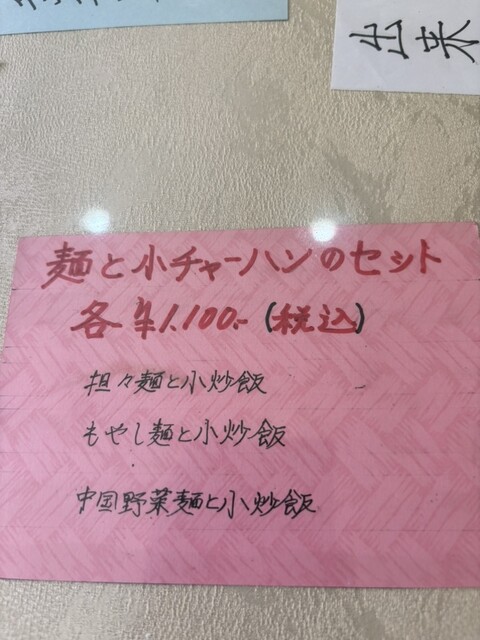 出来
麺と小チャーハンのセット
各¥1.100.-(税込)
担々麺と小炒飯
もやし麺と小炒飯
中国野菜麺と小炒飯